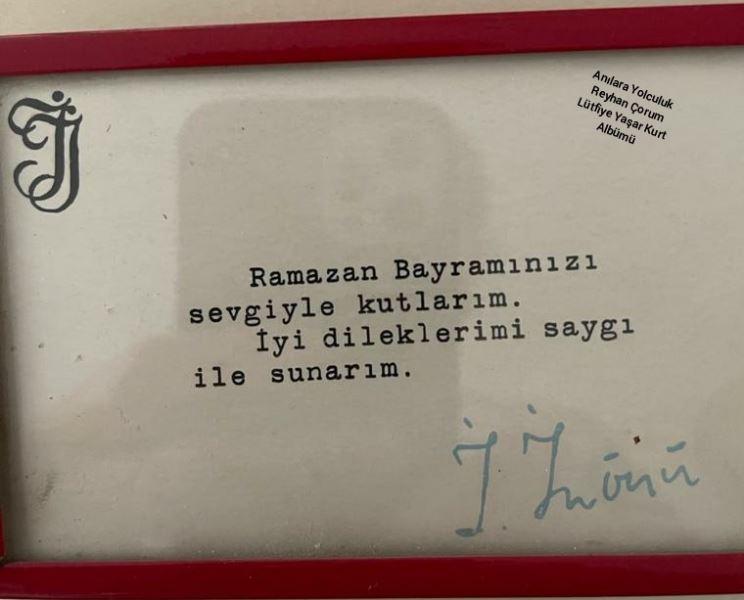 İİ
Anılara Yolculuk
Reyhan Çorum
Lütfiye Yaşar Kurt
Albümü
Ramazan Bayramınızı
sevgiyle kutlarım.
İyi dileklerimi saygı
ile sunarım.
İ. İnönü